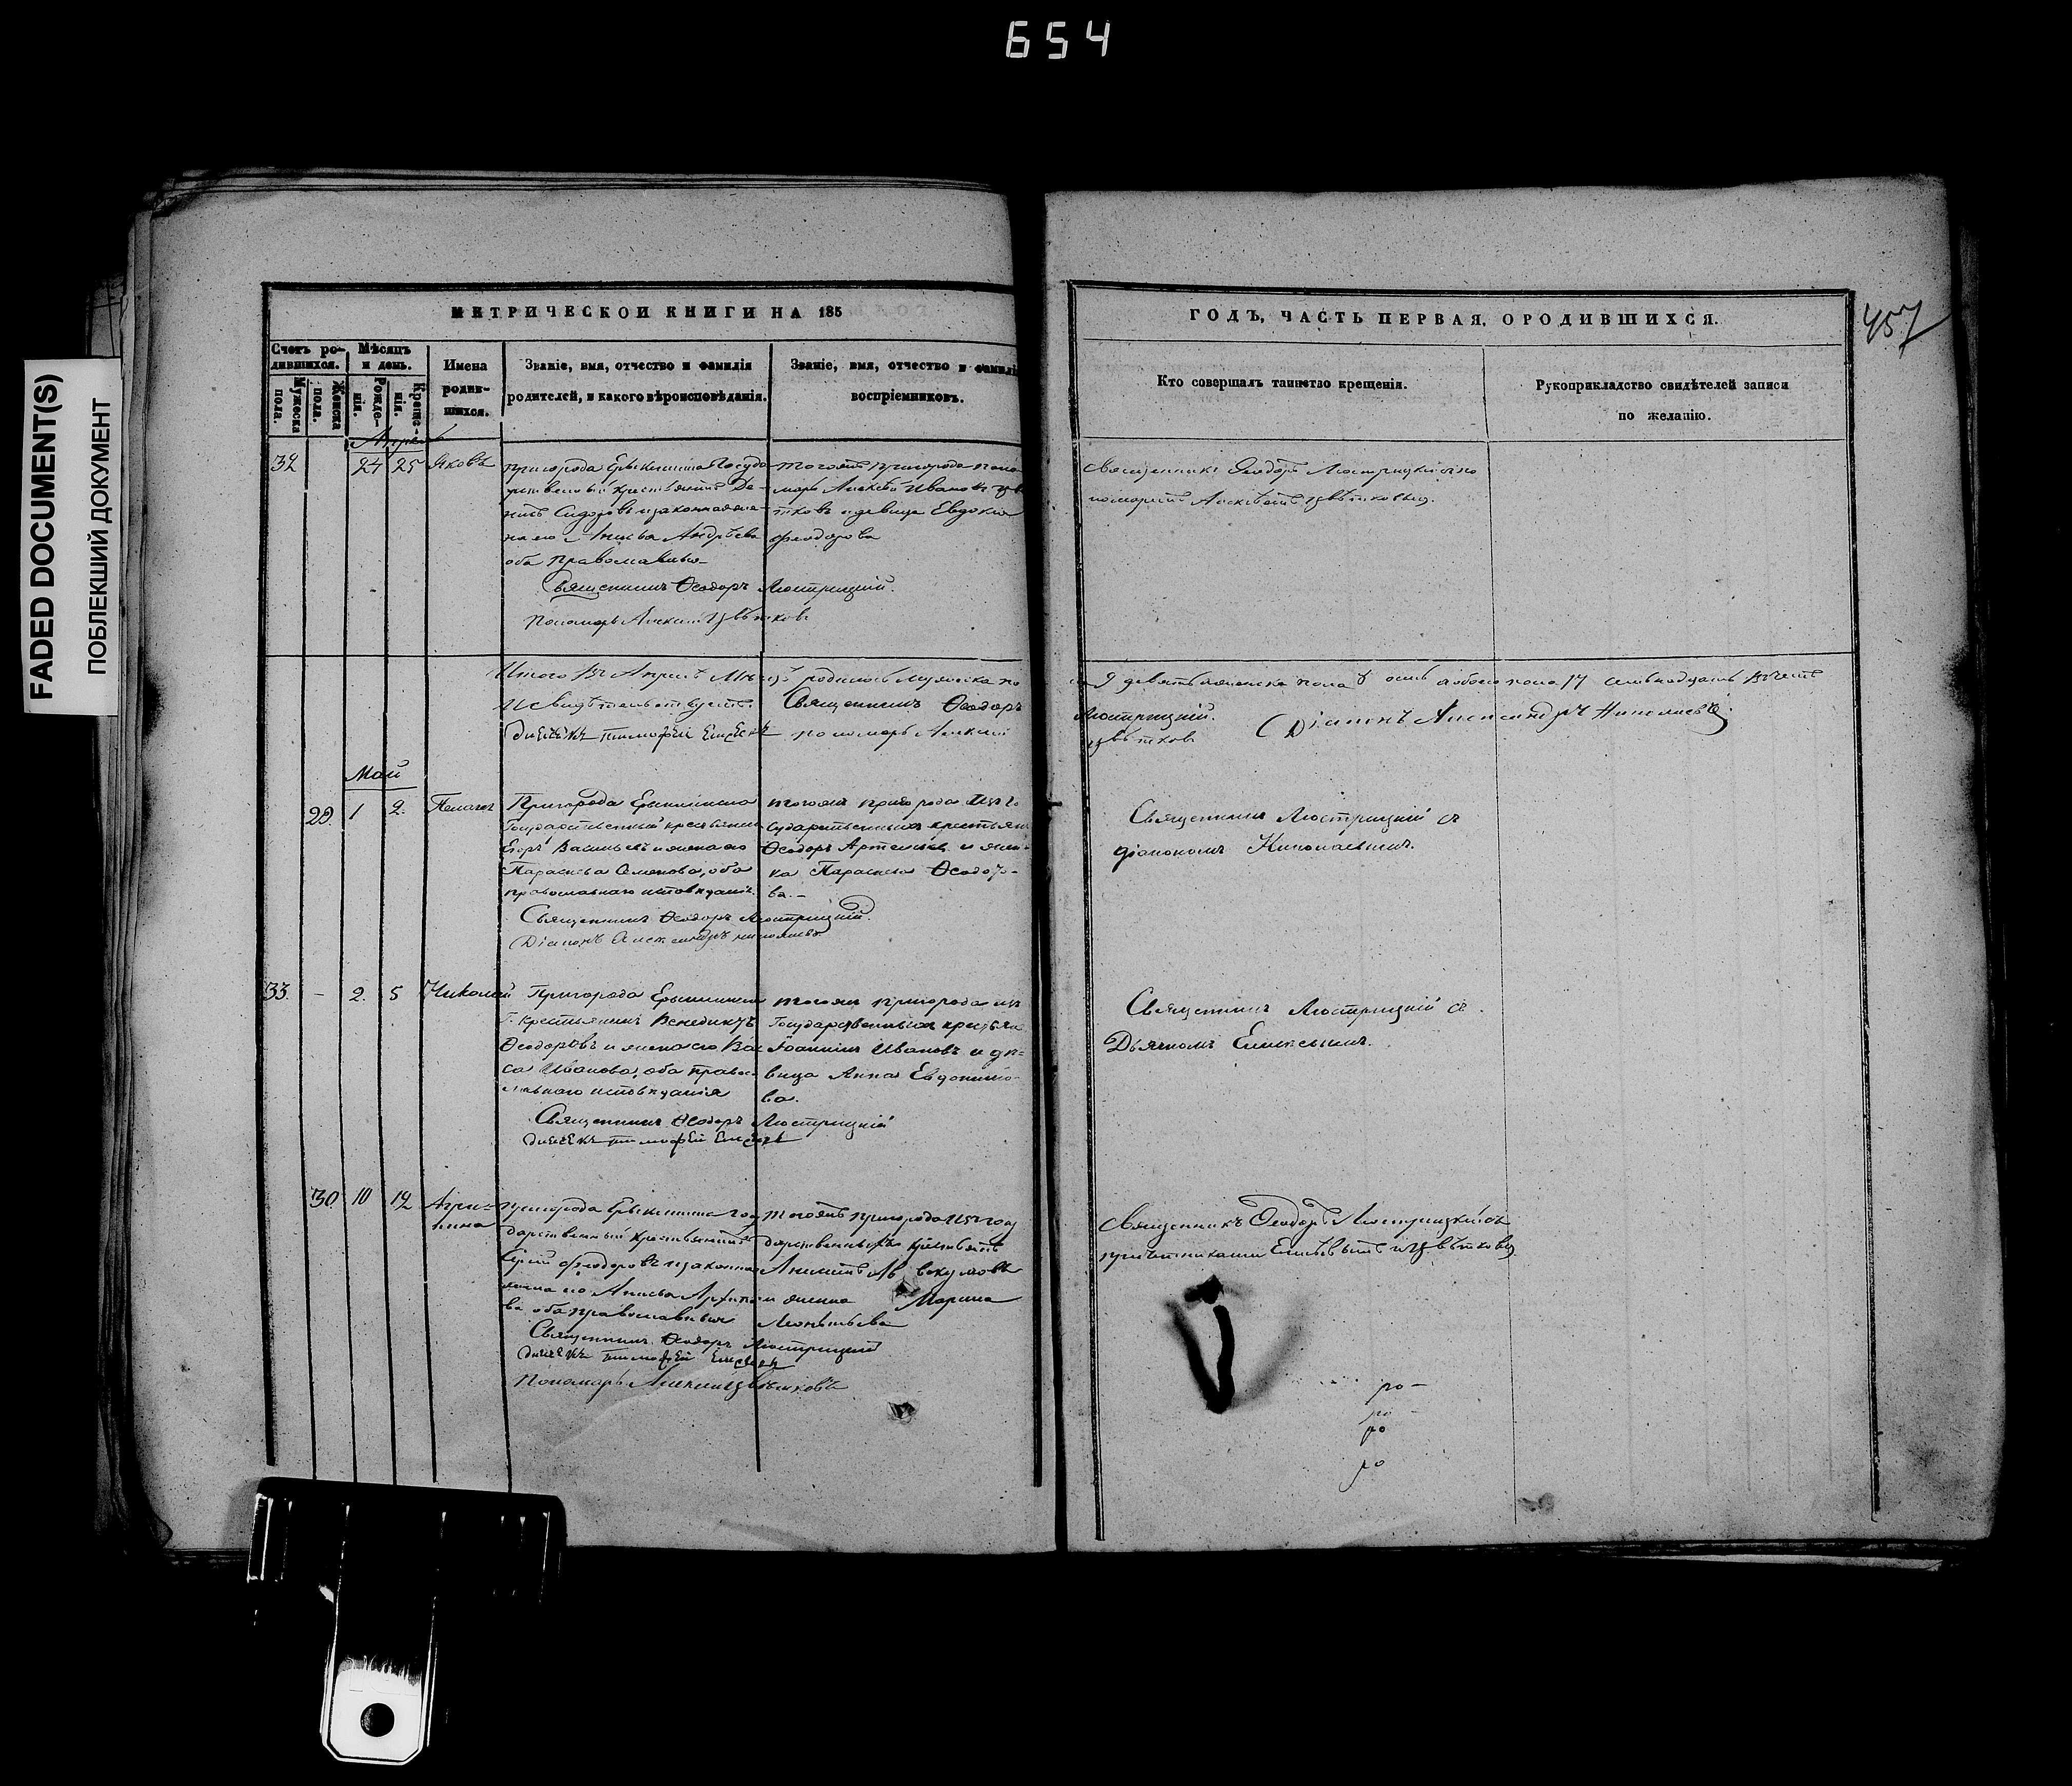 654
FADED DOCUMENT(S)
ПОБЛЕКШИЙ ДОКУМЕНТ
МЕТРИЧЕСКОЙ КНИГИ НА 185
Счетъ ро-
дившихся.
Мужеска
пола.
Женска
пола.
Мѣсяцъ
и день.
Рожде-
нія.
Креще-
нія.
Имена
родив-
шихся.
Званіе, имя, отчество и фамилія
родителей, и какого вѣроисповѣданія.
Званіе, имя, отчество и фамилія
воспріемниковъ.
32 24 25 Яковъ
пригорода Ерыклинска Госуда
рственный крестьянинъ Де-
Сидоровъ и законная же-
на его Андрѣева
оба православные
Священникъ Ѳеодоръ Люстрицкій.
Пономарь Алексій Цвѣтковъ
тогожъ пригорода поно
марь Алексѣй Ивановъ Цвѣ
тковъ и девица Евдокия
Феодорова
Итого въ Апрелѣ родилось мужеска по
И Свидѣтельствуетъ Священникъ Ѳеодоръ
Дьячекъ Тимофѣй пономарь Алексій
Май
29. 1 2. Пелагея
Пригорода Ерыклинска
Государственный крестьянинъ
Егоръ Васильевъ и жена его
Параскева Семенова, оба
православнаго исповѣданія.
Священникъ Ѳеодоръ Люстрицкій.
Діаконъ Александръ Николаевъ
тогожъ пригорода изъ Го
сударственныхъ крестьянъ
Ѳеодоръ Артемьевъ и жен-
ка Параскева Ѳеодоро-
ва.-
33. - 2. 5 Николай
Пригорода Ерыклинска
Г. крестьянинъ Венедиктъ
Ѳеодоровъ и жена его Ва
са Иванова, оба право-
славнаго исповѣданія
Священникъ Ѳеодоръ Люстрицкій
Дьячекъ Тимофѣй
тогожъ пригорода изъ
Государственныхъ крестьян
Іоаннъ Ивановъ и дѣ-
вица Анна Евдокимо-
ва.
30. 10 12 Агри-
пина
пригорода Ерыклинска Госу
дарственный крестьянинъ
Феодоровъ и законная
жена его Анисья Архипо
ва оба православныя
Священникъ Ѳеодоръ Люстрицкій
Дьячекъ Тимофѣй
Пономарь Алексій Цвѣтковъ
тогожъ пригорода изъ госу
дарственныхъ крестьянъ
и женка Марина
Леонтьева
ГОДЪ, ЧАСТЬ ПЕРВАЯ, О РОДИВШИХСЯ.
457
Кто совершалъ таинство крещенія.
Рукоприкладство свидѣтелей записи
по желанію.
Священникъ Ѳеодоръ Люстрицкій съ по
номаремъ Алексѣемъ Цвѣтковымъ.
9 девять женска пола 8 осмь а обоего пола 17 семьнадцать
Люстрицкій. Діаконъ Александръ Николаевъ.
Цвѣтковъ
Священникъ Люстрицкій съ
діакономъ Николаевымъ.
Священникъ Люстрицкій съ
Дьячкомъ
Священникъ Ѳеодоръ Люстрицкій съ
причетниками и Цвѣтковымъ
ро-
ро
ро
ро